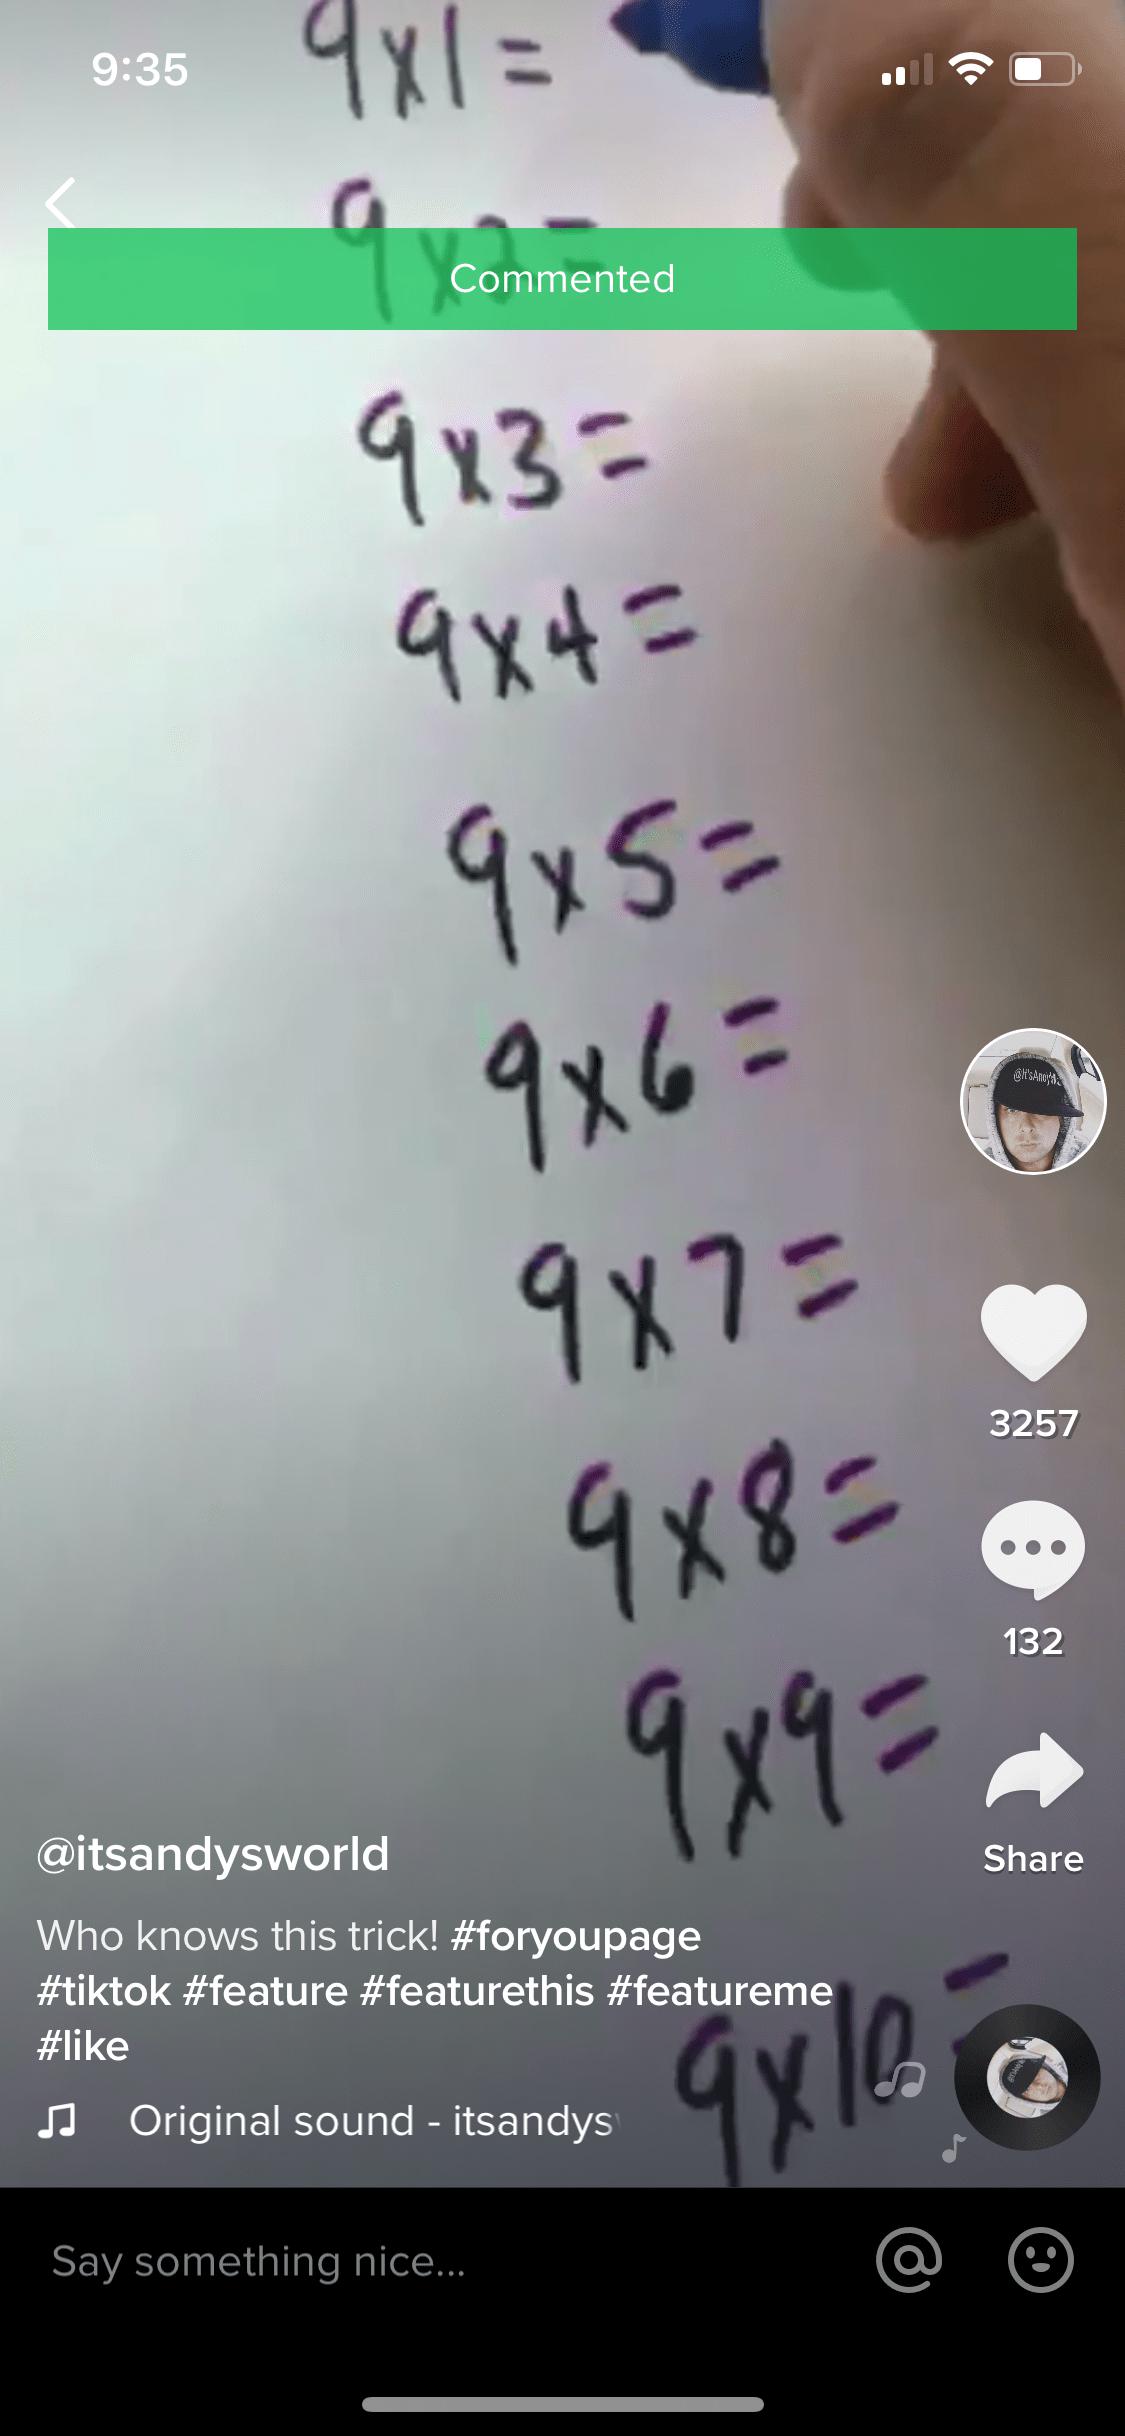 9x1=
9:35
9x2=
Commented
9x3=
9x4=
9x5=
9x6=
9x7=
9x8=
3257
132
9x9=
@itsandysworld
Share
Who knows this trick! #foryoupage
#tiktok #feature #featurethis #featureme
#like
9x10=
Original sound - itsandys
Say something nice...